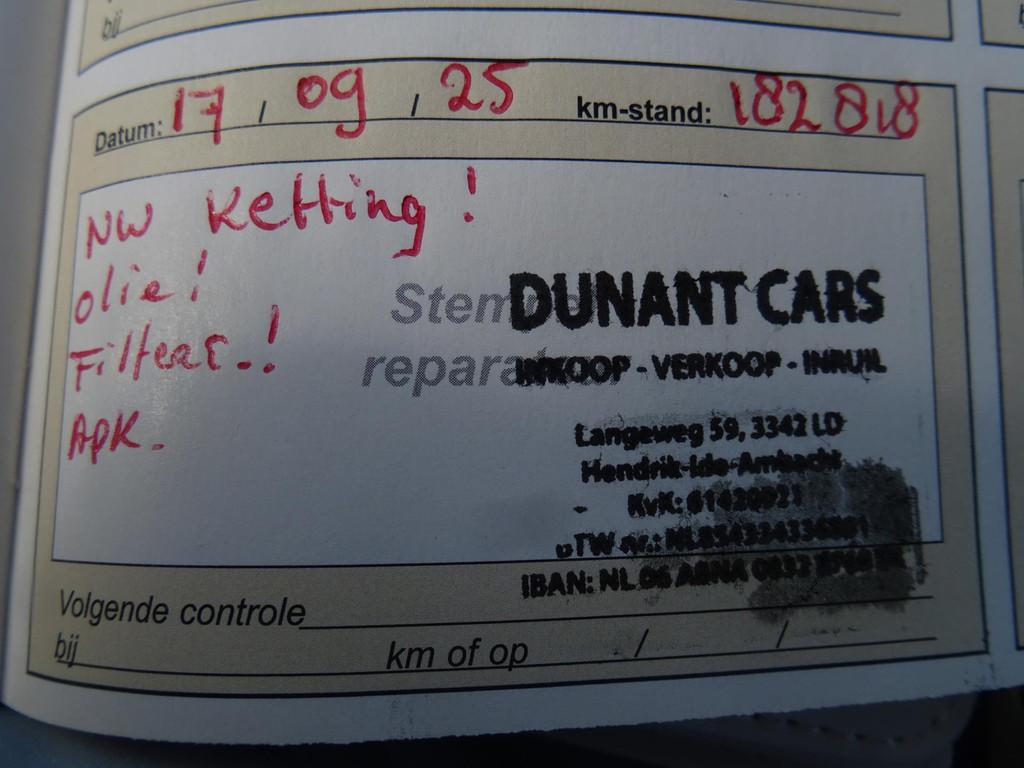 bij
Datum: 17 / 09 / 25 km-stand: 182 818
NW Ketting!
olie!
Filtear-!
APK.
Stem
repara
DUNANT CARS
INKOOP - VERKOOP - INRUIL
Langeweg 59, 3342 LD
Hendrik-Ido-Ambacht
KvK:
BTW nr.:
IBAN: NL 06 ABNA
Volgende controle
bij km of op / /